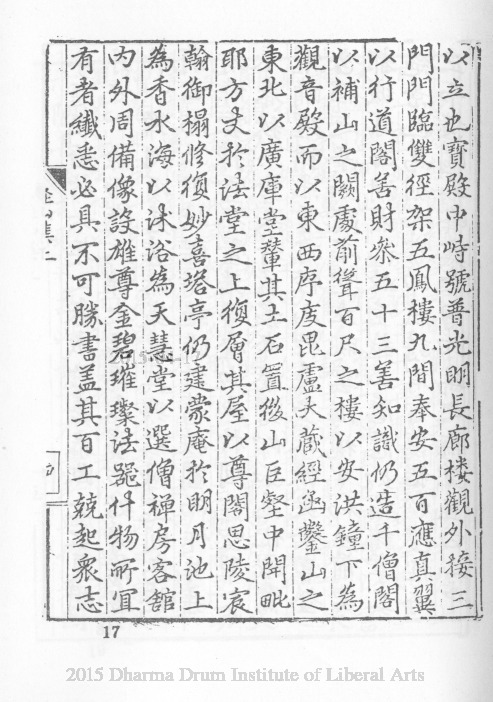 以立也寶殿中峙號普光明長廊楼觀外接三
門門臨雙徑架五鳳樓九間奉安五百應真翼
以行道閣善財參五十三善知識仍造千僧閣
以補山之闕處前聳百尺之樓以安洪鐘下為
觀音殿而以東西序庋毘盧大藏經函鑿山之
東北以廣庫堂輦其土石置後山巨壑中開毗
耶方丈於法堂之上復層其屋以尊閣思陵宸
翰御榻修復妙喜塔亭仍建蒙庵於明月池上
為香水海以沐浴為天慧堂以選僧禅房客舘
内外周備像設雄尊金碧璀璨法器什物所宜
有者纖悉必具不可勝書盖其百工兢起衆志
17
2015 Dharma Drum Institute of Liberal Arts